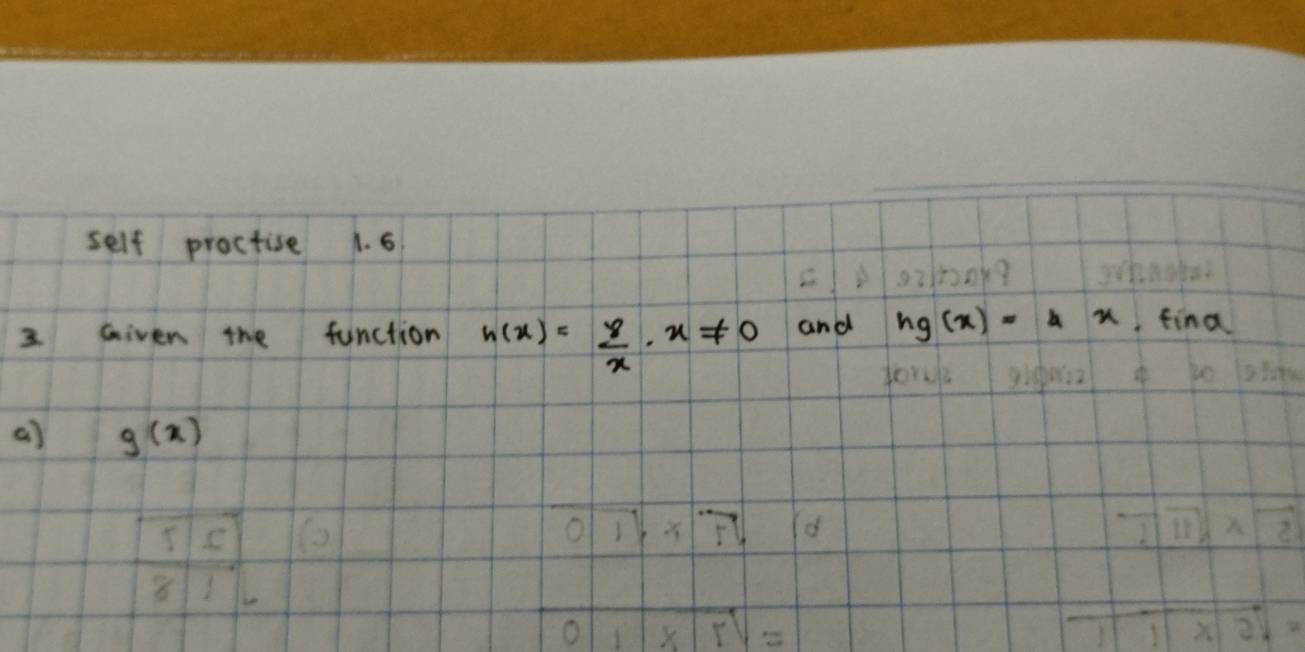 self practise 1.6
3 Given the function h(x) = 8/x, x ≠ 0 and hg(x) = 4x, find
a) g(x)